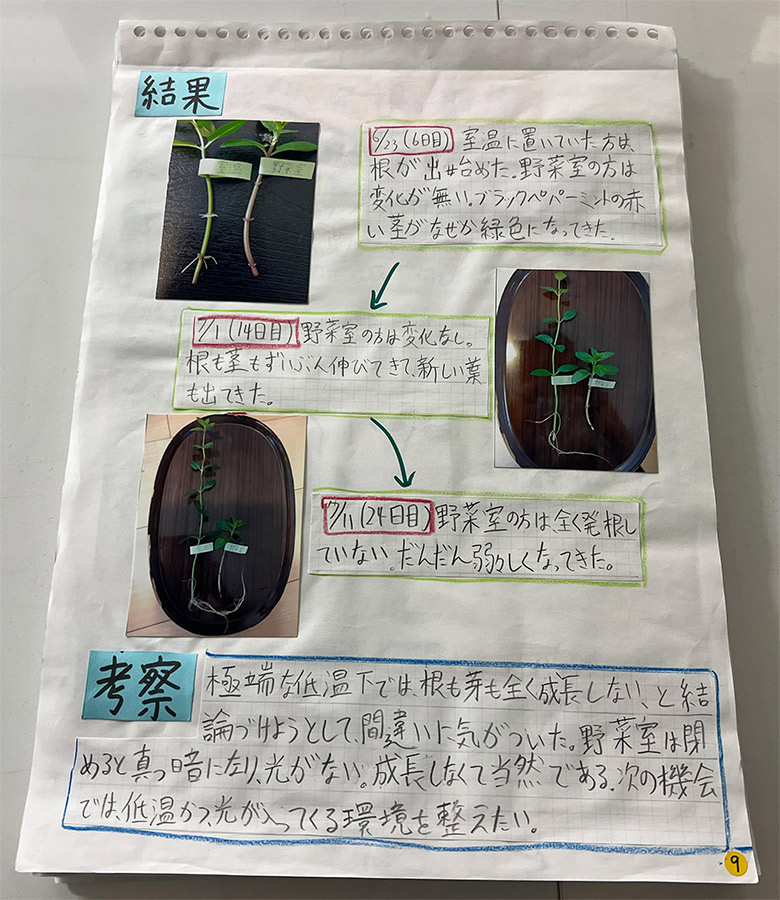 結果
6/23(6日目) 室温に置いていた方は、
根が出始めた。野菜室の方は
変化が無い。ブラックペパーミントの赤
い茎がなぜか緑色になってきた。
室温
野菜室
7/1(14日目) 野菜室の方は変化なし。
根も茎もずいぶん伸びてきて、新しい葉
も出てきた。
7/11(24日目) 野菜室の方は、全く発根し
ていない。だんだん弱々しくなってきた。
考察
極端な低温下では、根も芽も全く成長しない、と結
論づけようとして、間違いに気がついた。野菜室は閉
めると真っ暗になり、光がない。成長しなくて当然である。次の機会
では、低温かつ、光が入ってくる環境を整えたい。
9